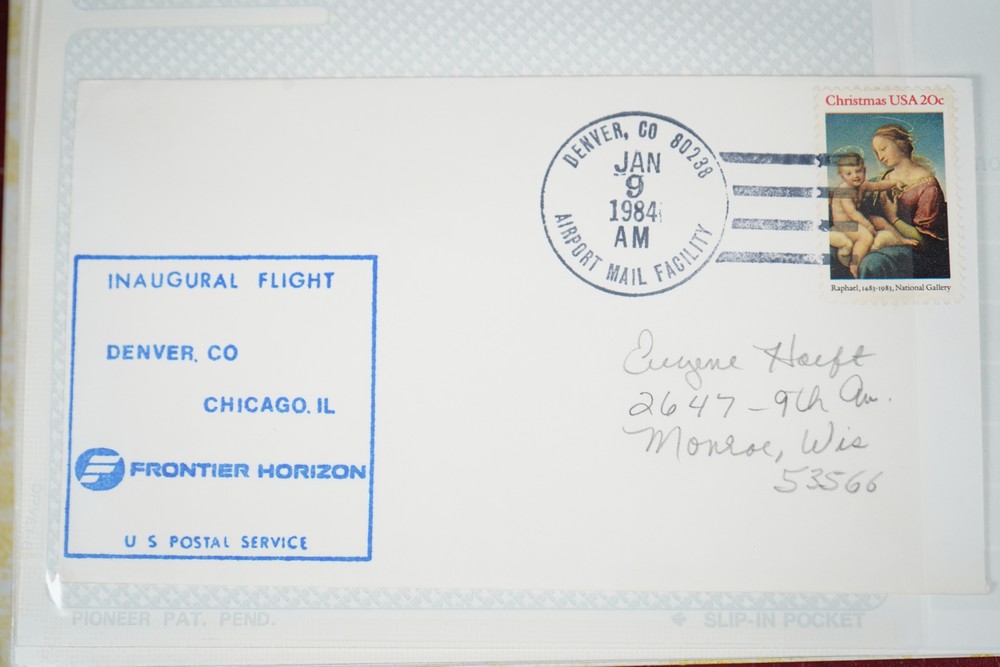 Christmas USA 20c
Raphael, 1483-1983, National Gallery
DENVER, CO 80238
JAN
9
1984
AM
AIRPORT MAIL FACILITY
INAUGURAL FLIGHT
DENVER, CO
CHICAGO, IL
FRONTIER HORIZON
U S POSTAL SERVICE
Eugene
2647-9th Av.
Monroe, Wis
53566
PIONEER PAT. PEND.
SLIP-IN POCKET